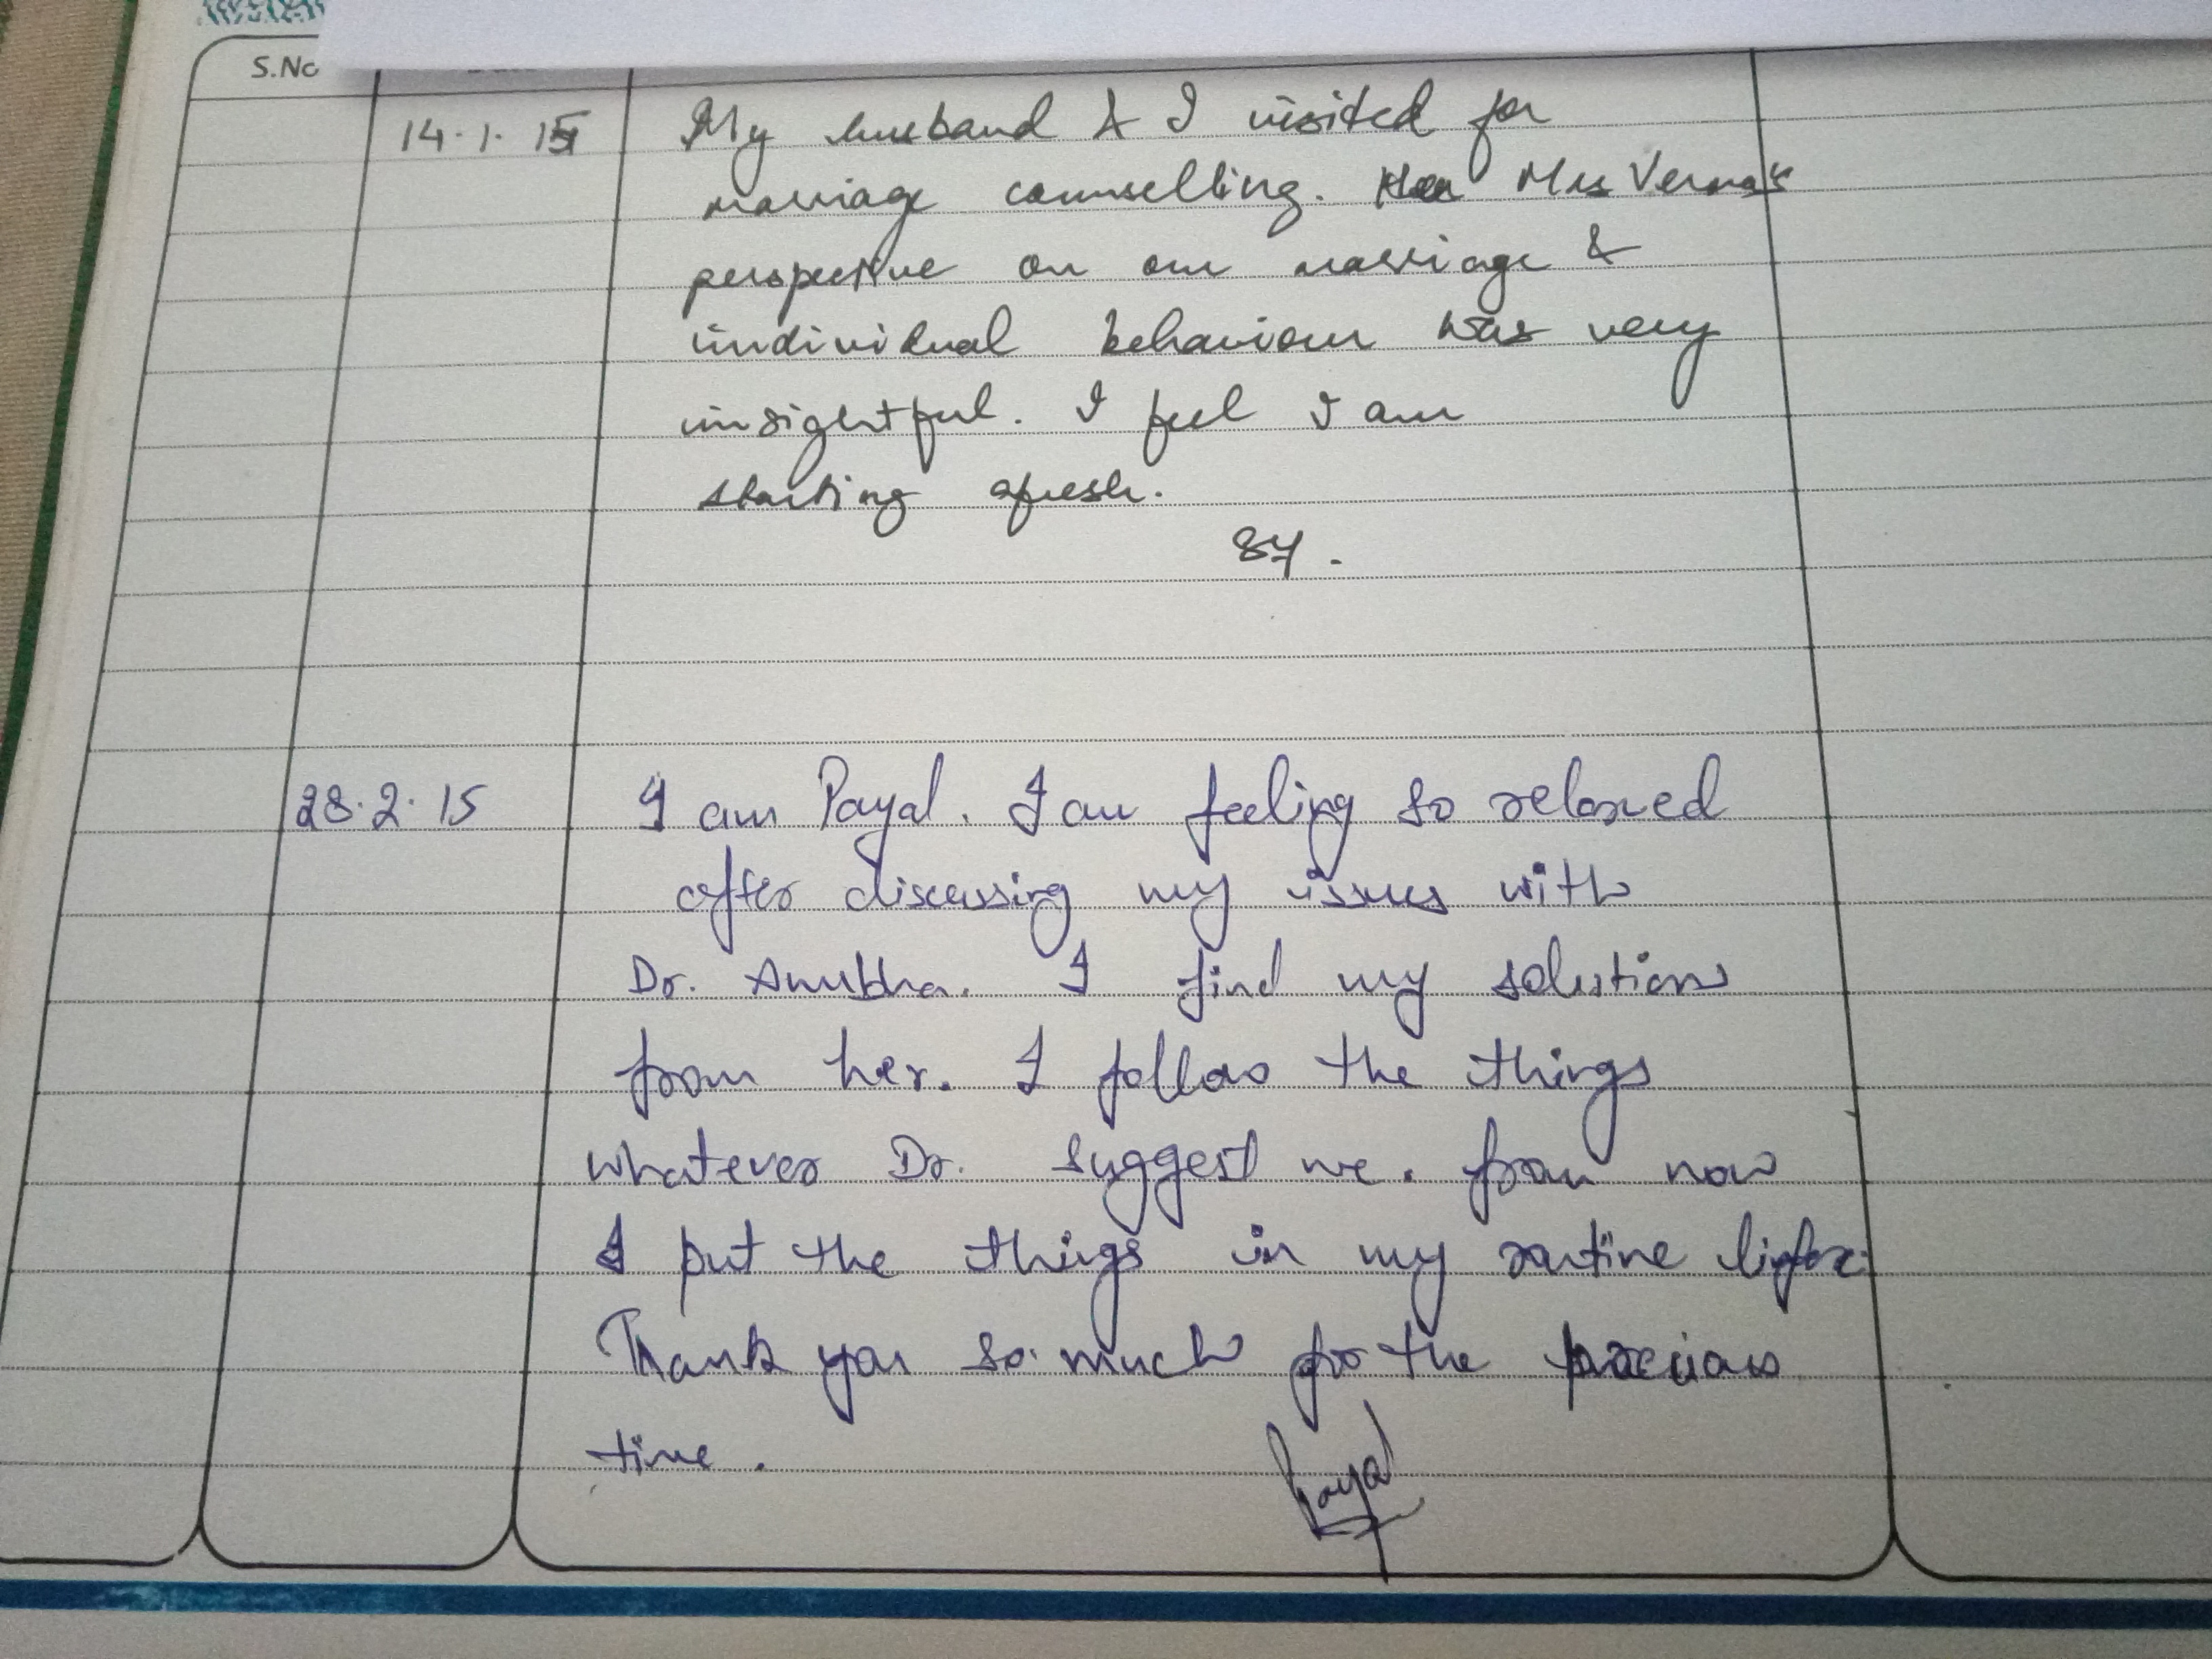 S.No
14.1.15 My husband & I visited for
marriage counselling. Mrs Verma's
perspective on our marriage &
individual behaviour was very
insightful. I feel I am
starting afresh.
28.2.15 I am Payal. I am feeling so relaxed
after discussing my issues with
Dr. Anubha. I find my solution
from her. I follow the things
whatever Dr. suggest me. from now
I put the things in my routine life.
Thank you so much for the precious
time.
Payal